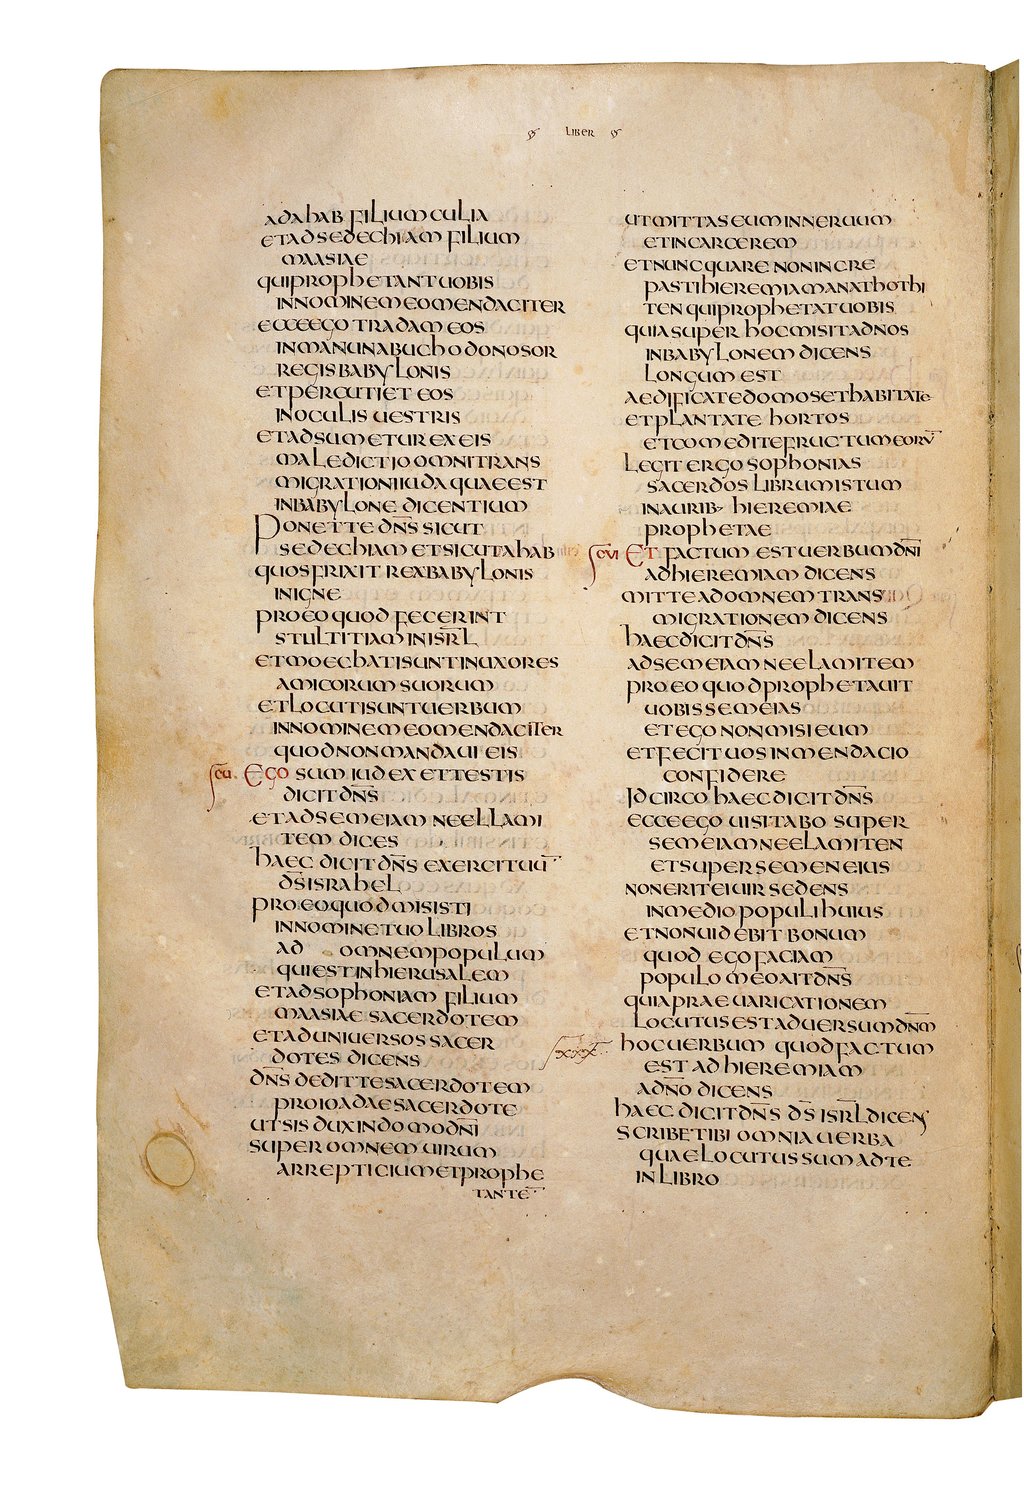 LIBER
ADAHAB FILIUM CULIA
ETADSEDECHIAM FILIUM
MAASIAE
QUIPROPHETANTUOBIS
INNOMINEMEOMENDACITER
ECCEEGO TRADAM EOS
INMANUNABUCHODONOSOR
REGISBABYLONIS
ETPERCUTIET EOS
INOCULIS UESTRIS
ETADSUMETUR EX EIS
MALEDICTIO OMNITRANS
MIGRATIONIIUDAQUAEEST
INBABYLONE DICENTIUM
PONETTE DN̅S SICUT
SEDECHIAM ETSICUTAHAB
QUOSFRIXIT REXBABYLONIS
INIGNE
PROEOQUOD FECERINT
STULTITIAM INISR̅L
ETMOECHATISUNTINUXORES
AMICORUM SUORUM
ETLOCUTISUNTUERBUM
INNOMINEMEOMENDACITER
QUODNONMANDAUI EIS
EGO SUM IUDEX ETTESTIS
DICITDN̅S
ETADSEMEIAM NEELLAMI
TEM DICES
HAEC DICITDN̅S EXERCITUU̅
DS̅ISRAHEL
PROEOQUODMISISTI
INNOMINETUOLIBROS
AD OMNEMPOPULUM
QUIESTINHIERUSALEM
ETADSOPHONIAM FILIUM
MAASIAE SACERDOTEM
ETADUNIUERSOSSACER
DOTES DICENS
DN̅S DEDITTESACERDOTEM
PROIOADAESACERDOTE
UTSIS DUXINDOMODN̅I
SUPEROMNEMUIRUM
ARREPTICIUMETPROPHE
TANTE̅
UTMITTASEUMINNERUUM
ETINCARCEREM
ETNUNCQUARE NONINCRE
PASTIHIEREMIAMANATHOTHI
TENQUIPROPHETATUOBIS
QUIASUPER HOCMISITADNOS
INBABYLONEM DICENS
LONGUM EST
AEDIFICATEDOMOSETHABITATE
ETPLANTATE HORTOS
ETCOMEDITEFRUCTUMEORU̅
LEGIT ERGO SOPHONIAS
SACERDOS LIBRUMISTUM
INAURIB· HIEREMIAE
PROPHETAE
ET FACTUM ESTUERBUMDN̅I
ADHIEREMIAM DICENS
MITTEADOMNEM TRANS
MIGRATIONEM DICENS
HAECDICITDN̅S
ADSEMEIAM NEELAMITEM
PROEOQUODPROPHETAUIT
UOBISSEMEIAS
ETEGO NONMISIEUM
ETFECITUOSINMENDACIO
CONFIDERE
IDCIRCO HAECDICITDN̅S
ECCEEGO UISITABO SUPER
SEMEIAMNEELAMITEN
ETSUPERSEMENEIUS
NONERITEIUIR SEDENS
INMEDIOPOPULI HUIUS
ETNONUIDEBIT BONUM
QUOD EGOFACIAM
POPULO MEOAITDN̅S
QUIAPRAEUARICATIONEM
LOCUTUSESTADUERSUMDN̅M
XXX HOCUERBUM QUODFACTUM
EST AD HIEREMIAM
ADN̅O DICENS
HAEC DICITDN̅S DS̅ ISR̅LDICENS
SCRIBETIBI OMNIAUERBA
QUAELOCUTUSSUMADTE
INLIBRO